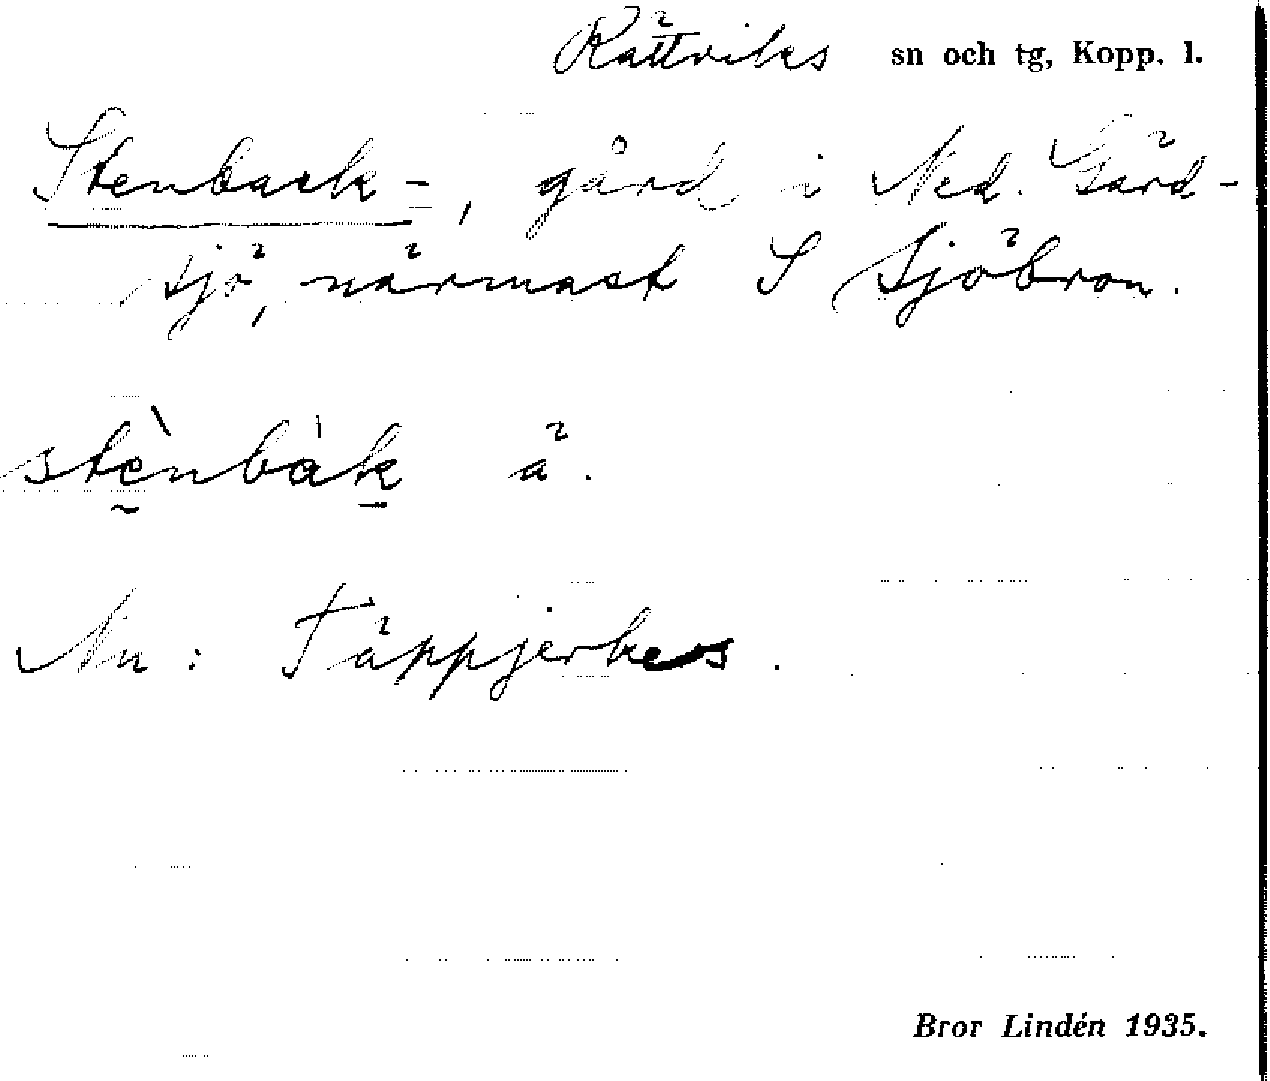 Rättviks sn och tg, Kopp. l.
Stenback-, gård i Ned. Gärd-
sjö, närmast S Sjöbron.
stènbàk ä.
Nu: Täppjerkers.
Bror Lindén 1935.